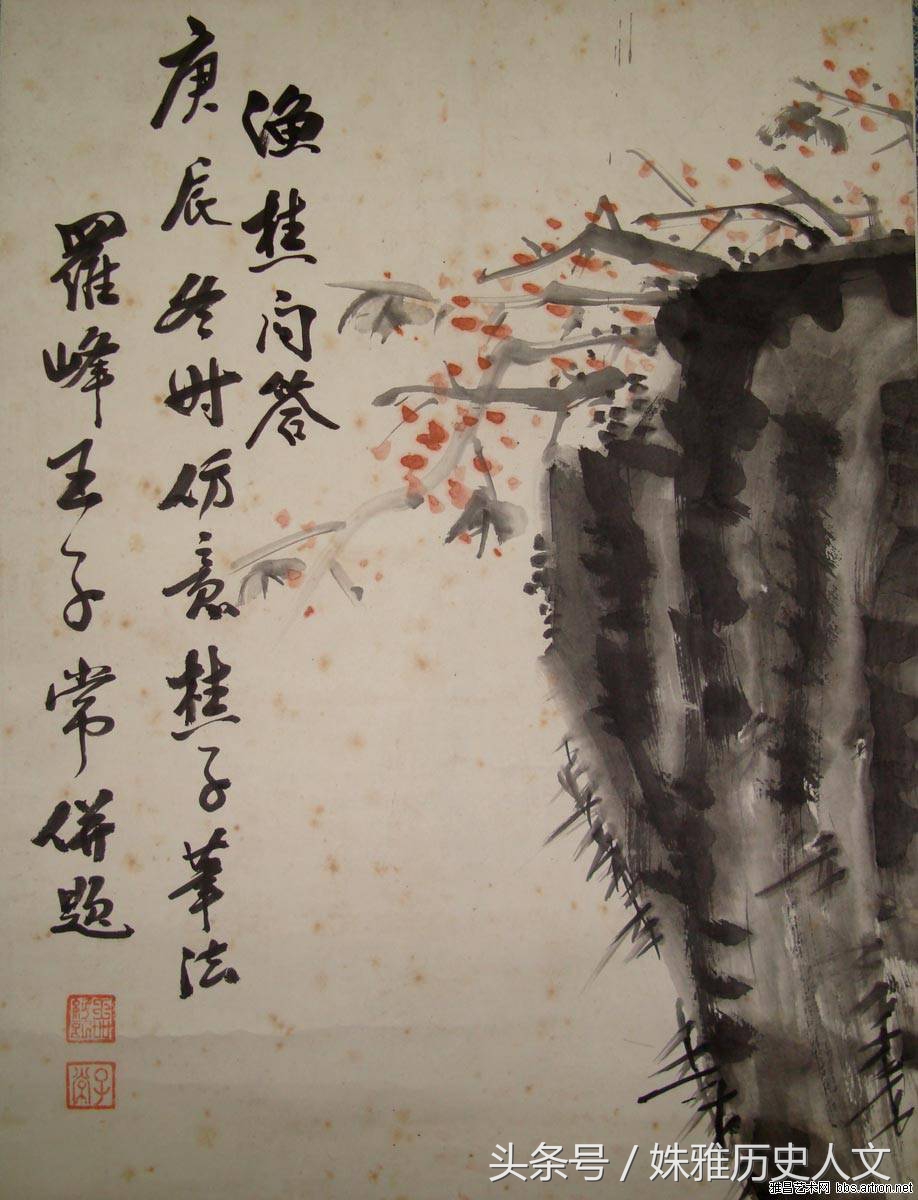 漁樵问答
庚辰冬时仿意樵子筆法
羅峰王子常併题
子常
头条号 / 姝雅历史人文
雅昌艺术网 bbs.artron.net